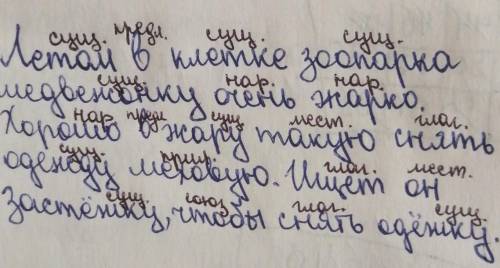 сущ. предл. сущ. сущ.
Летом в клетке зоопарка
сущ. нар. нар.
медвежонку очень жарко.
нар. предл. сущ. мест. глаг.
Хорошо в жару такую снять
сущ. прил. глаг. мест.
одежду меховую. Ищет он
сущ. союз глаг. сущ.
застёжку, чтобы снять одёжку.